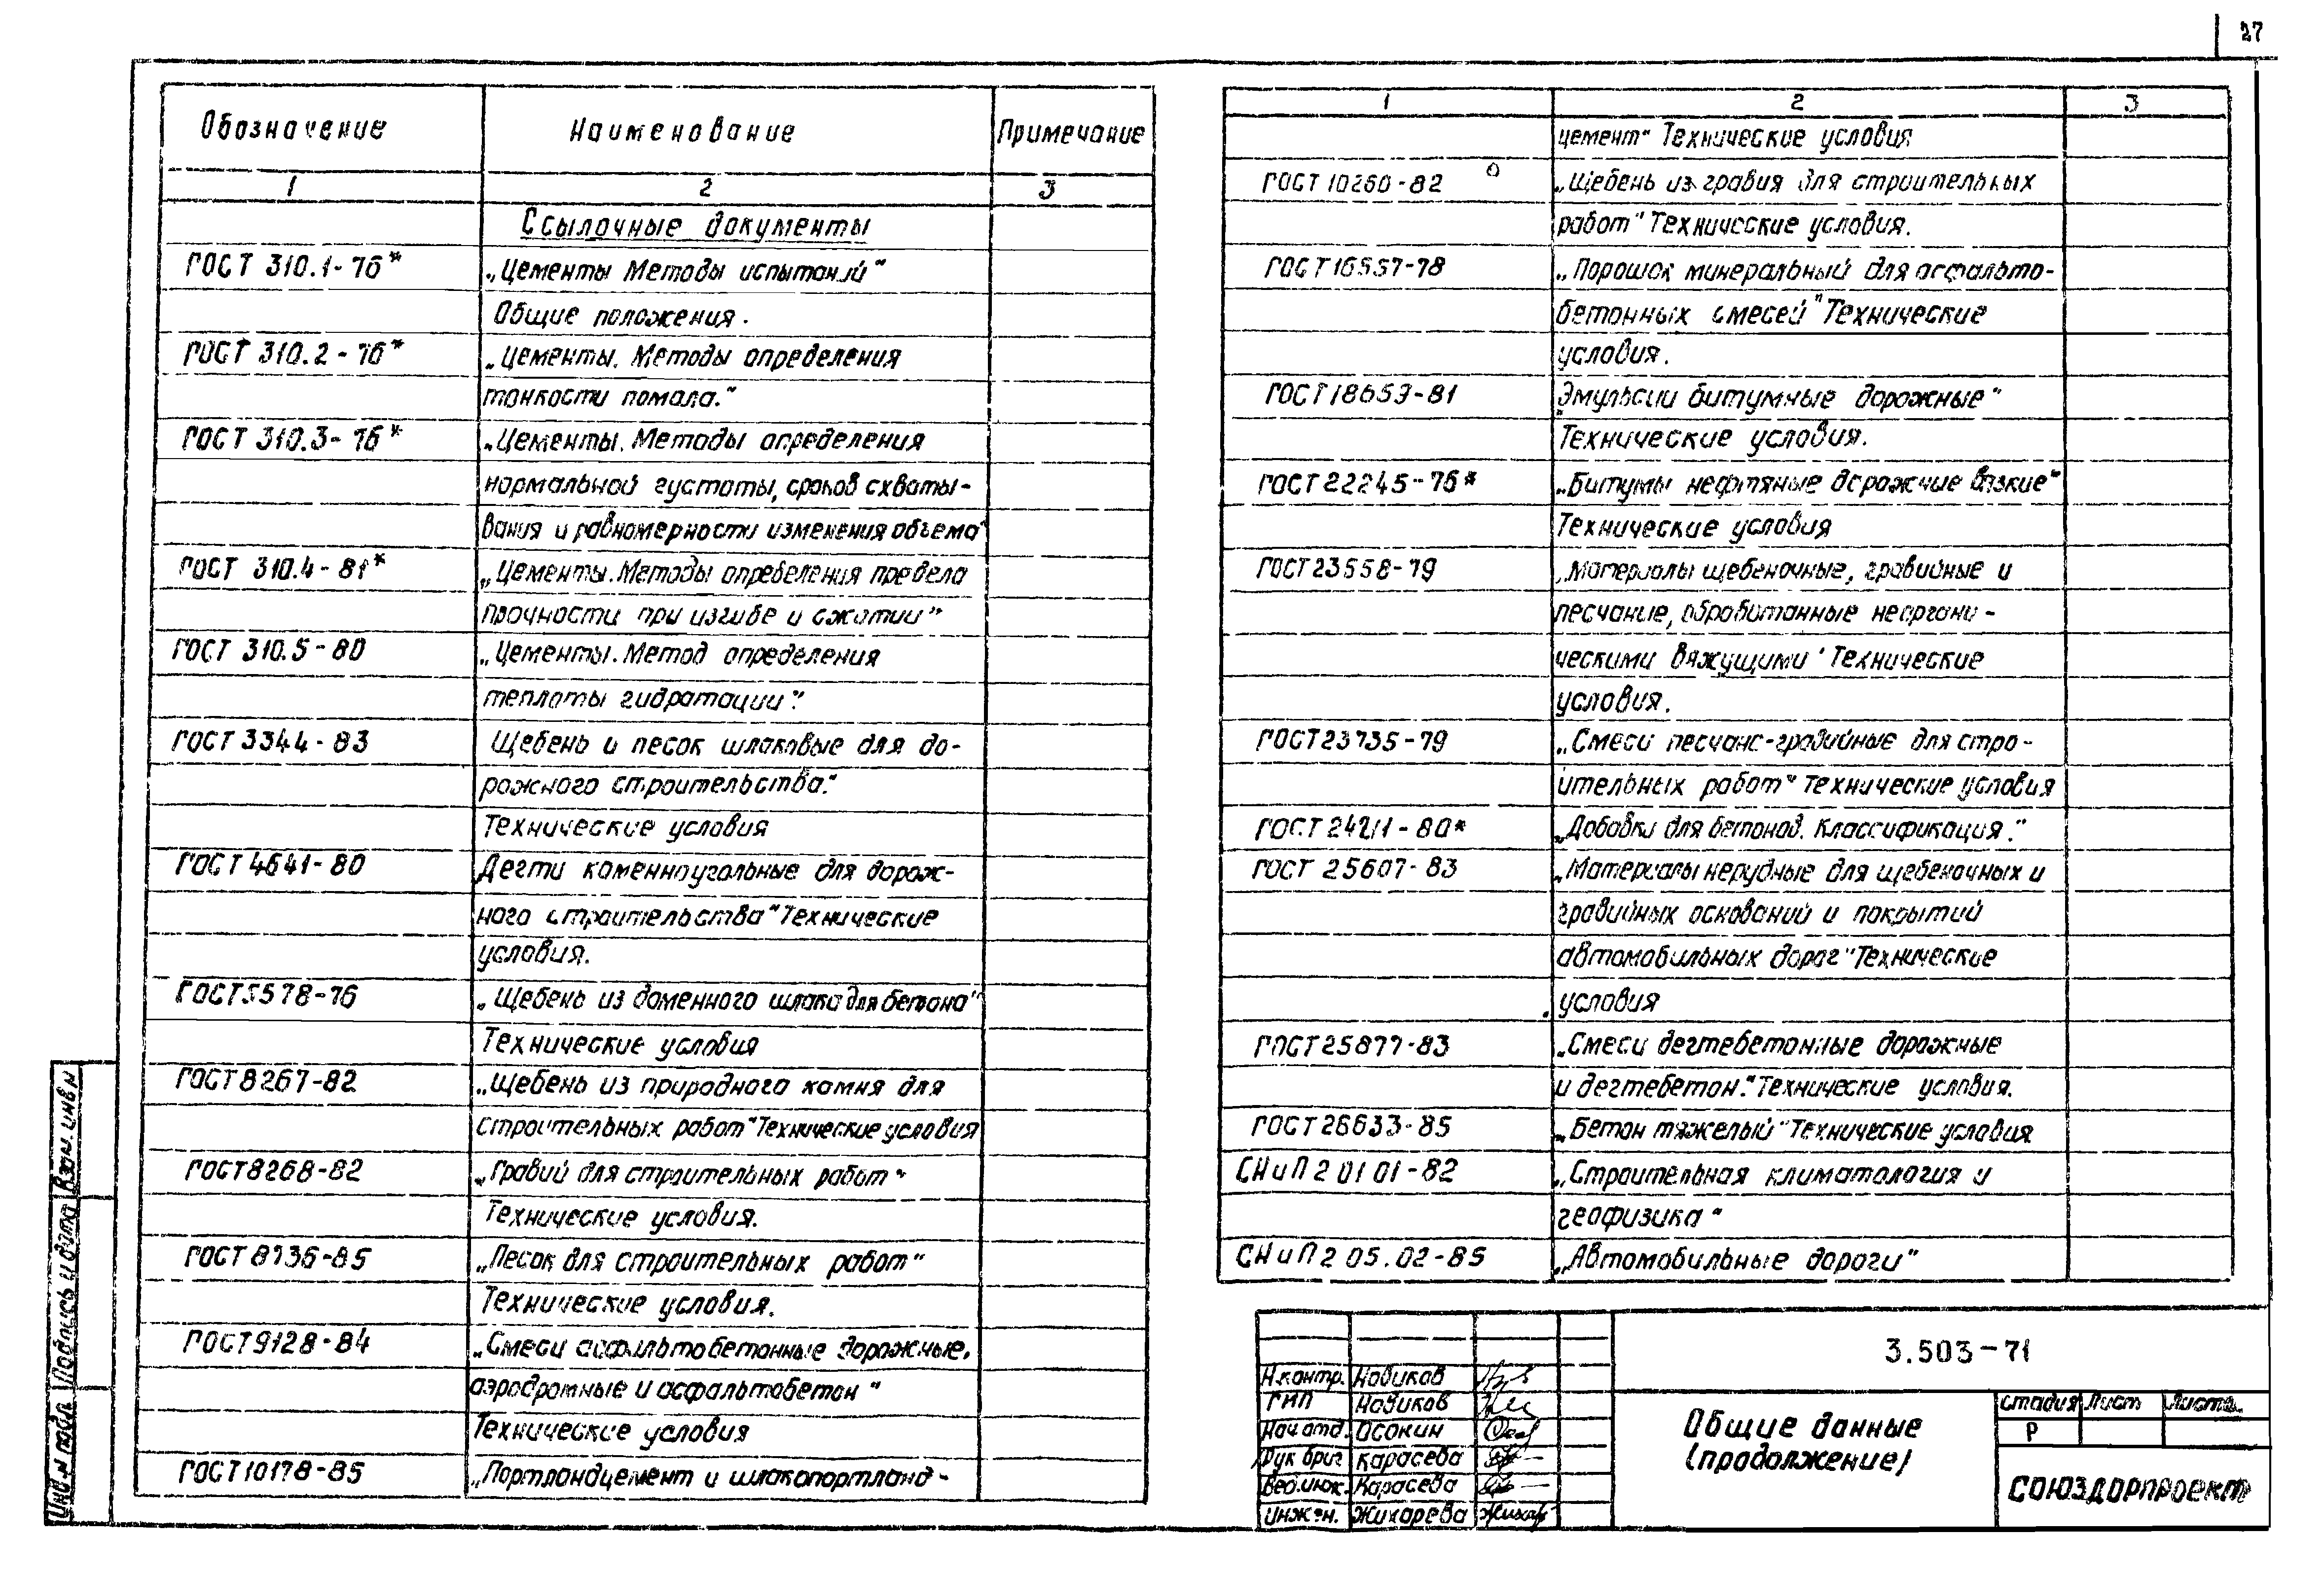 27
Обозначение Наименование Примечание
1 2 3
Ссылочные документы
ГОСТ 310.1-76* „Цементы Методы испытаний“
Общие положения.
ГОСТ 310.2-76* „Цементы. Методы определения
тонкости помола.“
ГОСТ 310.3-76* „Цементы. Методы определения
нормальной густоты, сроков схваты-
вания и равномерности изменения объема“
ГОСТ 310.4-81* „Цементы. Методы определения предела
прочности при изгибе и сжатии“
ГОСТ 310.5-80 „Цементы. Метод определения
теплоты гидратации“.
ГОСТ 3344-83 Щебень и песок шлаковые для до-
рожного строительства.“
Технические условия
ГОСТ 4641-80 Дегти каменноугольные для дорож-
ного строительства“ Технические
условия.
ГОСТ 5578-76 „Щебень из доменного шлака для бетона“
Технические условия
ГОСТ 8267-82 „Щебень из природного камня для
строительных работ“ Технические условия
ГОСТ 8268-82 „Гравий для строительных работ“
Технические условия.
ГОСТ 8736-85 „Песок для строительных работ“
Технические условия.
ГОСТ 9128-84 „Смеси асфальтобетонные дорожные,
аэродромные и асфальтобетон“
Технические условия
ГОСТ 10178-85 „Портландцемент и шлакопортланд-
1 2 3
цемент“ Технические условия
ГОСТ 10260-82 „Щебень из гравия для строительных
работ“ Технические условия.
ГОСТ 16557-78 „Порошок минеральный для асфальто-
бетонных смесей“ Технические
условия.
ГОСТ 18659-81 „Эмульсии битумные дорожные“
Технические условия.
ГОСТ 22245-76* „Битумы нефтяные дорожные вязкие“
Технические условия
ГОСТ 23558-79 „Материалы щебеночные, гравийные и
песчаные, обработанные неоргани-
ческими вяжущими“ Технические
условия.
ГОСТ 23735-79 „Смеси песчано-гравийные для стро-
ительных работ“ Технические условия
ГОСТ 24211-80* „Добавки для бетонов. Классификация.“
ГОСТ 25607-83 „Материалы нерудные для щебеночных и
гравийных оснований и покрытий
автомобильных дорог“ Технические
условия
ГОСТ 25877-83 „Смеси дегтебетонные дорожные
и дегтебетон.“ Технические условия.
ГОСТ 26633-85 „Бетон тяжелый“ Технические условия
СНиП 2 01 01-82 „Строительная климатология и
геофизика“
СНиП 2 05.02-85 „Автомобильные дороги“
3.503-71
Н.контр. Новиков
ГИП Новиков
Нач отд. Осокин
Рук бриг Карасева
Вед.инж. Карасева
Инжен. Жихарева
Общие данные
(продолжение)
Стадия Лист Листов
Р
СОЮЗДОРПРОЕКТ
Взам. инв N
Подпись и дата
Инв. N подл